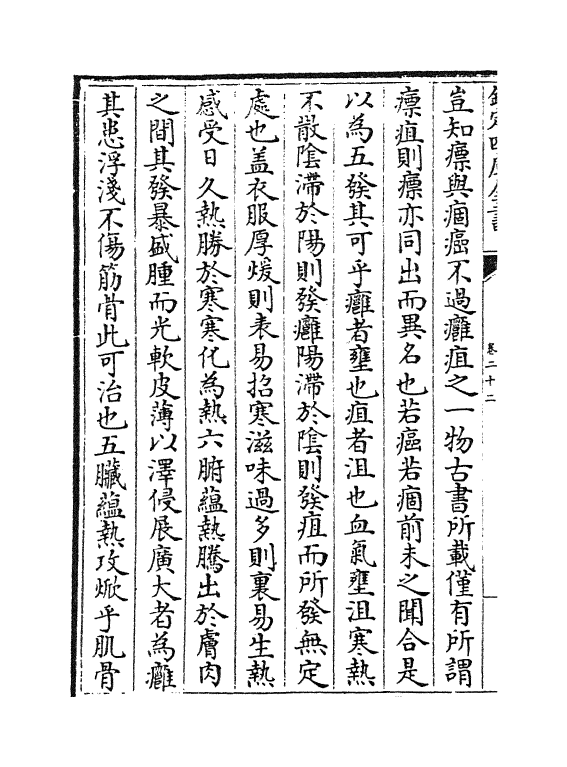 欽定四庫全書
卷二十二
豈知瘭與痼癌不過癰疽之一物古書所載僅有所謂
瘭疽則瘭亦同出而異名也若癌若痼前未之聞合是
以為五發其可乎癰者壅也疽者沮也血氣壅沮寒熱
不散陰滯於陽則發癰陽滯於陰則發疽而所發無定
處也盖衣服厚煖則表易招寒滋味過多則裏易生熱
感受日久熱勝於寒寒化為熱六腑蘊熱騰出於膚肉
之間其發暴盛腫而光軟皮薄以澤侵展廣大者為癰
其患浮淺不傷筋骨此可治也五臟蘊熱攻焮乎肌骨